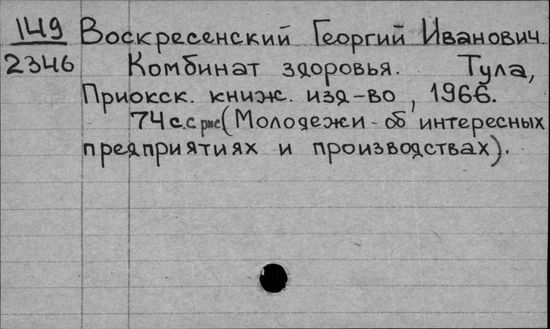 149 Воскресенский Георгий Иванович.
2346 Комбинат здоровья. Тула,
Приокск. книж. изд-во, 1966.
74 с. с рис (Молодежи - об интересных
предприятиях и производствах).